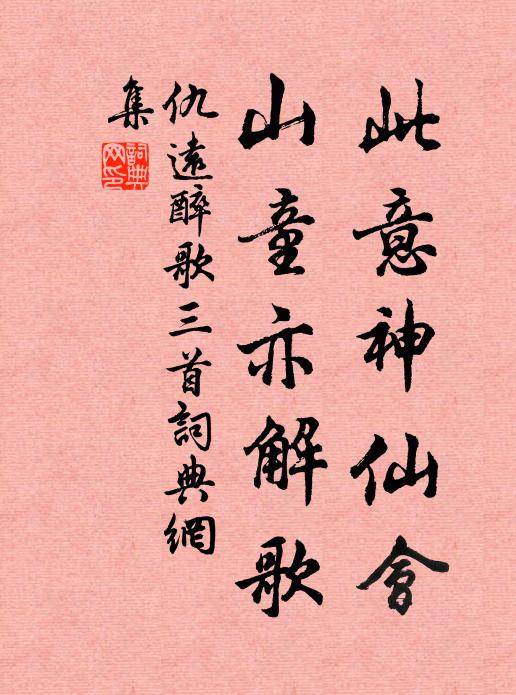 此意神仙會
山童亦解歌
仇遠醉歌三首詞典網
集
詞典網印